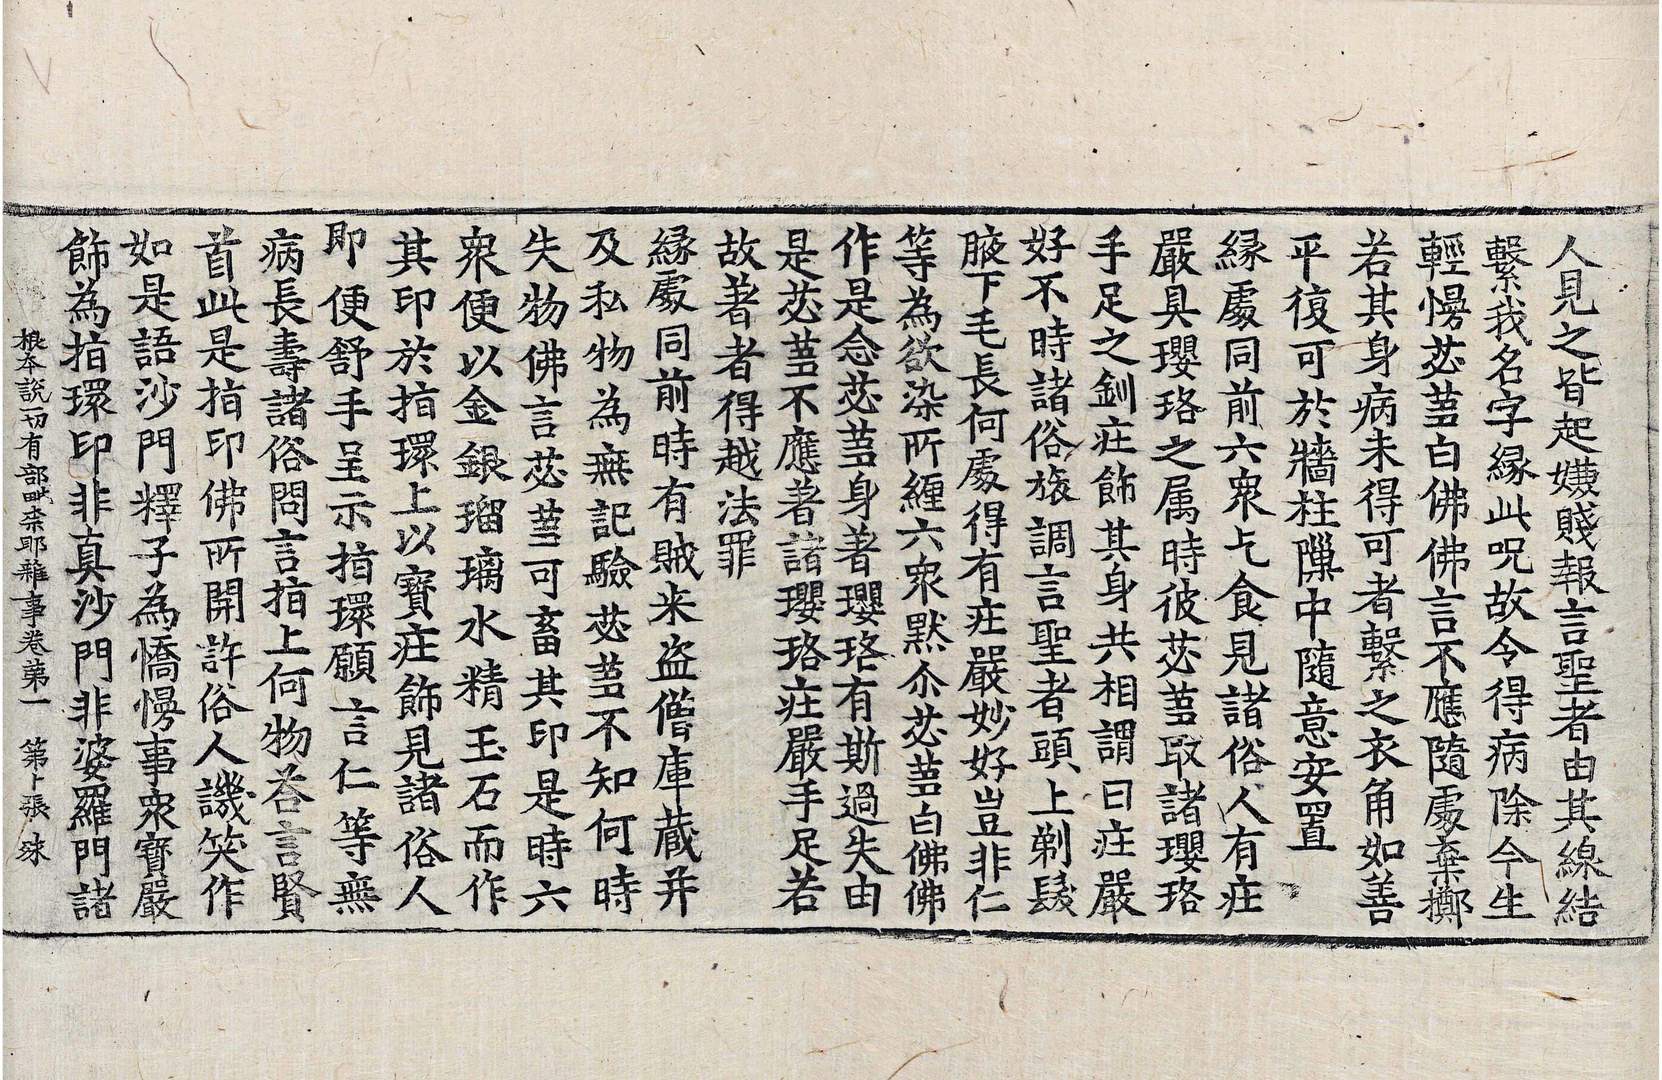 人見之皆起嫌賤報言聖者由其線結
繫我名字緣此呪故令得病除今生
輕慢苾芻白佛佛言不應隨處棄擲
若其身病未得可者繫之衣角如善
平復可於牆柱隟中隨意安置
緣處同前六衆乞食見諸俗人有庄
嚴具瓔珞之属時彼苾芻取諸瓔珞
手足之釧庄飾其身共相謂曰庄嚴
好不時諸俗旅調言聖者頭上剃髮
腋下毛長何處得有庄嚴妙好豈非仁
等為欲染所纏六衆默尒苾芻白佛佛
作是念苾芻身著瓔珞有斯過失由
是苾芻不應著諸瓔珞庄嚴手足若
故著者得越法罪
緣處同前時有賊来盗僧庫蔵并
及私物為無記驗苾芻不知何時
失物佛言苾芻可畜其印是時六
衆便以金銀瑠璃水精玉石而作
其印於指環上以寶庄飾見諸俗人
即便舒手呈示指環願言仁等無
病長壽諸俗問言指上何物荅言賢
首此是指印佛所開許俗人譏笑作
如是語沙門釋子為憍慢事衆寶嚴
飾為指環印非真沙門非婆羅門諸
根本說一切有部毗柰耶雜事卷第一　第卜張　殊